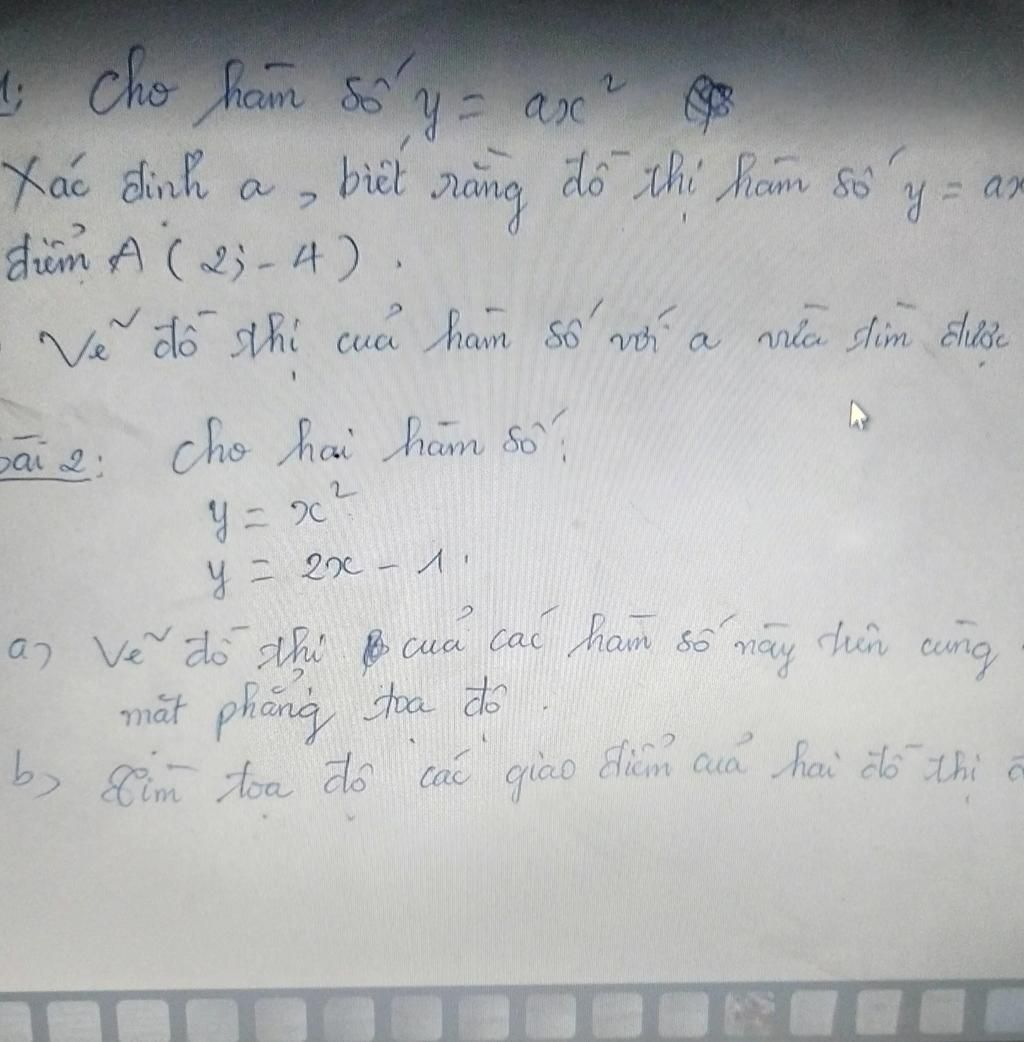 1: Cho hàm số y = ax²
Xác định a, biết rằng đồ thị hàm số y = ax
điểm A (2; -4).
Vẽ đồ thị của hàm số với a vừa tìm được
bài 2: Cho hai hàm số:
y = x²
y = 2x - 1.
a) Vẽ đồ thị của các hàm số này trên cùng
mặt phẳng tọa độ.
b) Tìm tọa độ các giao điểm của hai đồ thị